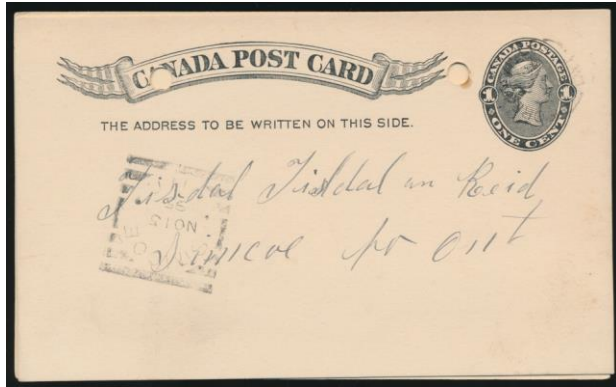 CANADA POST CARD
CANADA POSTAGE
1 1
ONE CENT
THE ADDRESS TO BE WRITTEN ON THIS SIDE.
Tisdal Tisdal an Reid
Simcoe po Ont
NO 15